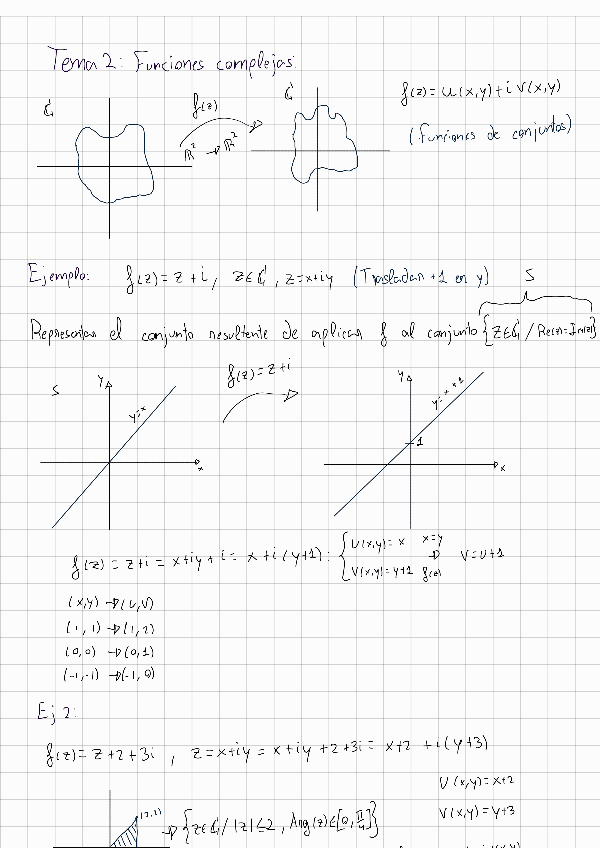 Tema 2: Funciones complejas:
ℂ
f(z)
ℝ² → ℝ²
ℂ
f(z) = u(x,y) + i v(x,y)
(Funciones de conjuntos)
Ejemplo: f(z) = z + i, z∈ℂ, z=x+iy (Trasladar +1 en y)
S
Representar el conjunto resultente de aplicar f al conjunto {z∈ℂ / Re(z)=Im(z)}
S
y
y=x
x
f(z)=z+i
y
y=x+1
1
x
f(z) = z+i = x+iy + i = x+i(y+1): { U(x,y)=x x=y → V=U+1
V(x,y)=y+1 f(z)
(x,y) → (U,V)
(1,1) → (1,2)
(0,0) → (0,1)
(-1,-1) → (-1,0)
Ej 2:
f(z) = z+2+3i , z = x+iy = x+iy+2+3i = x+2 + i(y+3)
U(x,y)=x+2
V(x,y)=y+3
(2,2) → {z∈ℂ / |z|≤2, Arg(z)∈[0, π/4]}